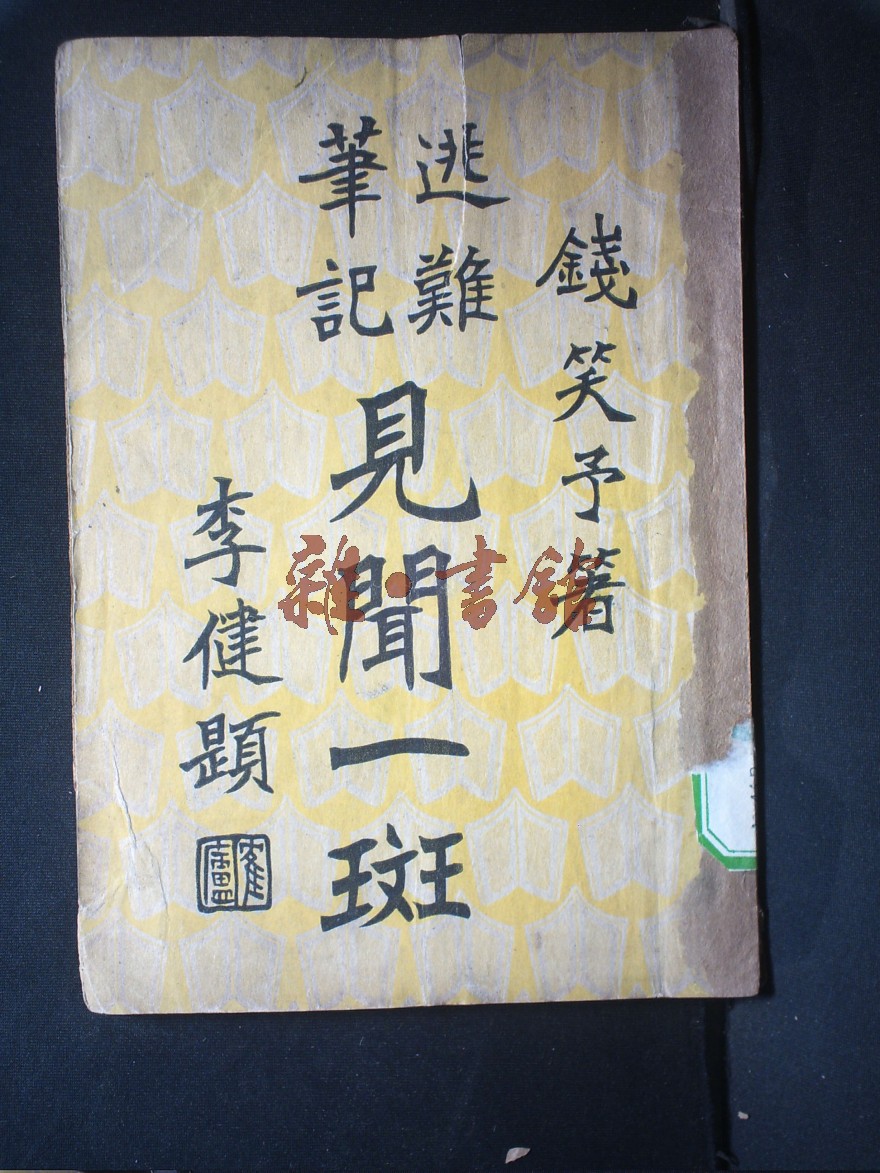 錢笑予著
逃難
筆記
見聞一斑
李健題
雜·書館